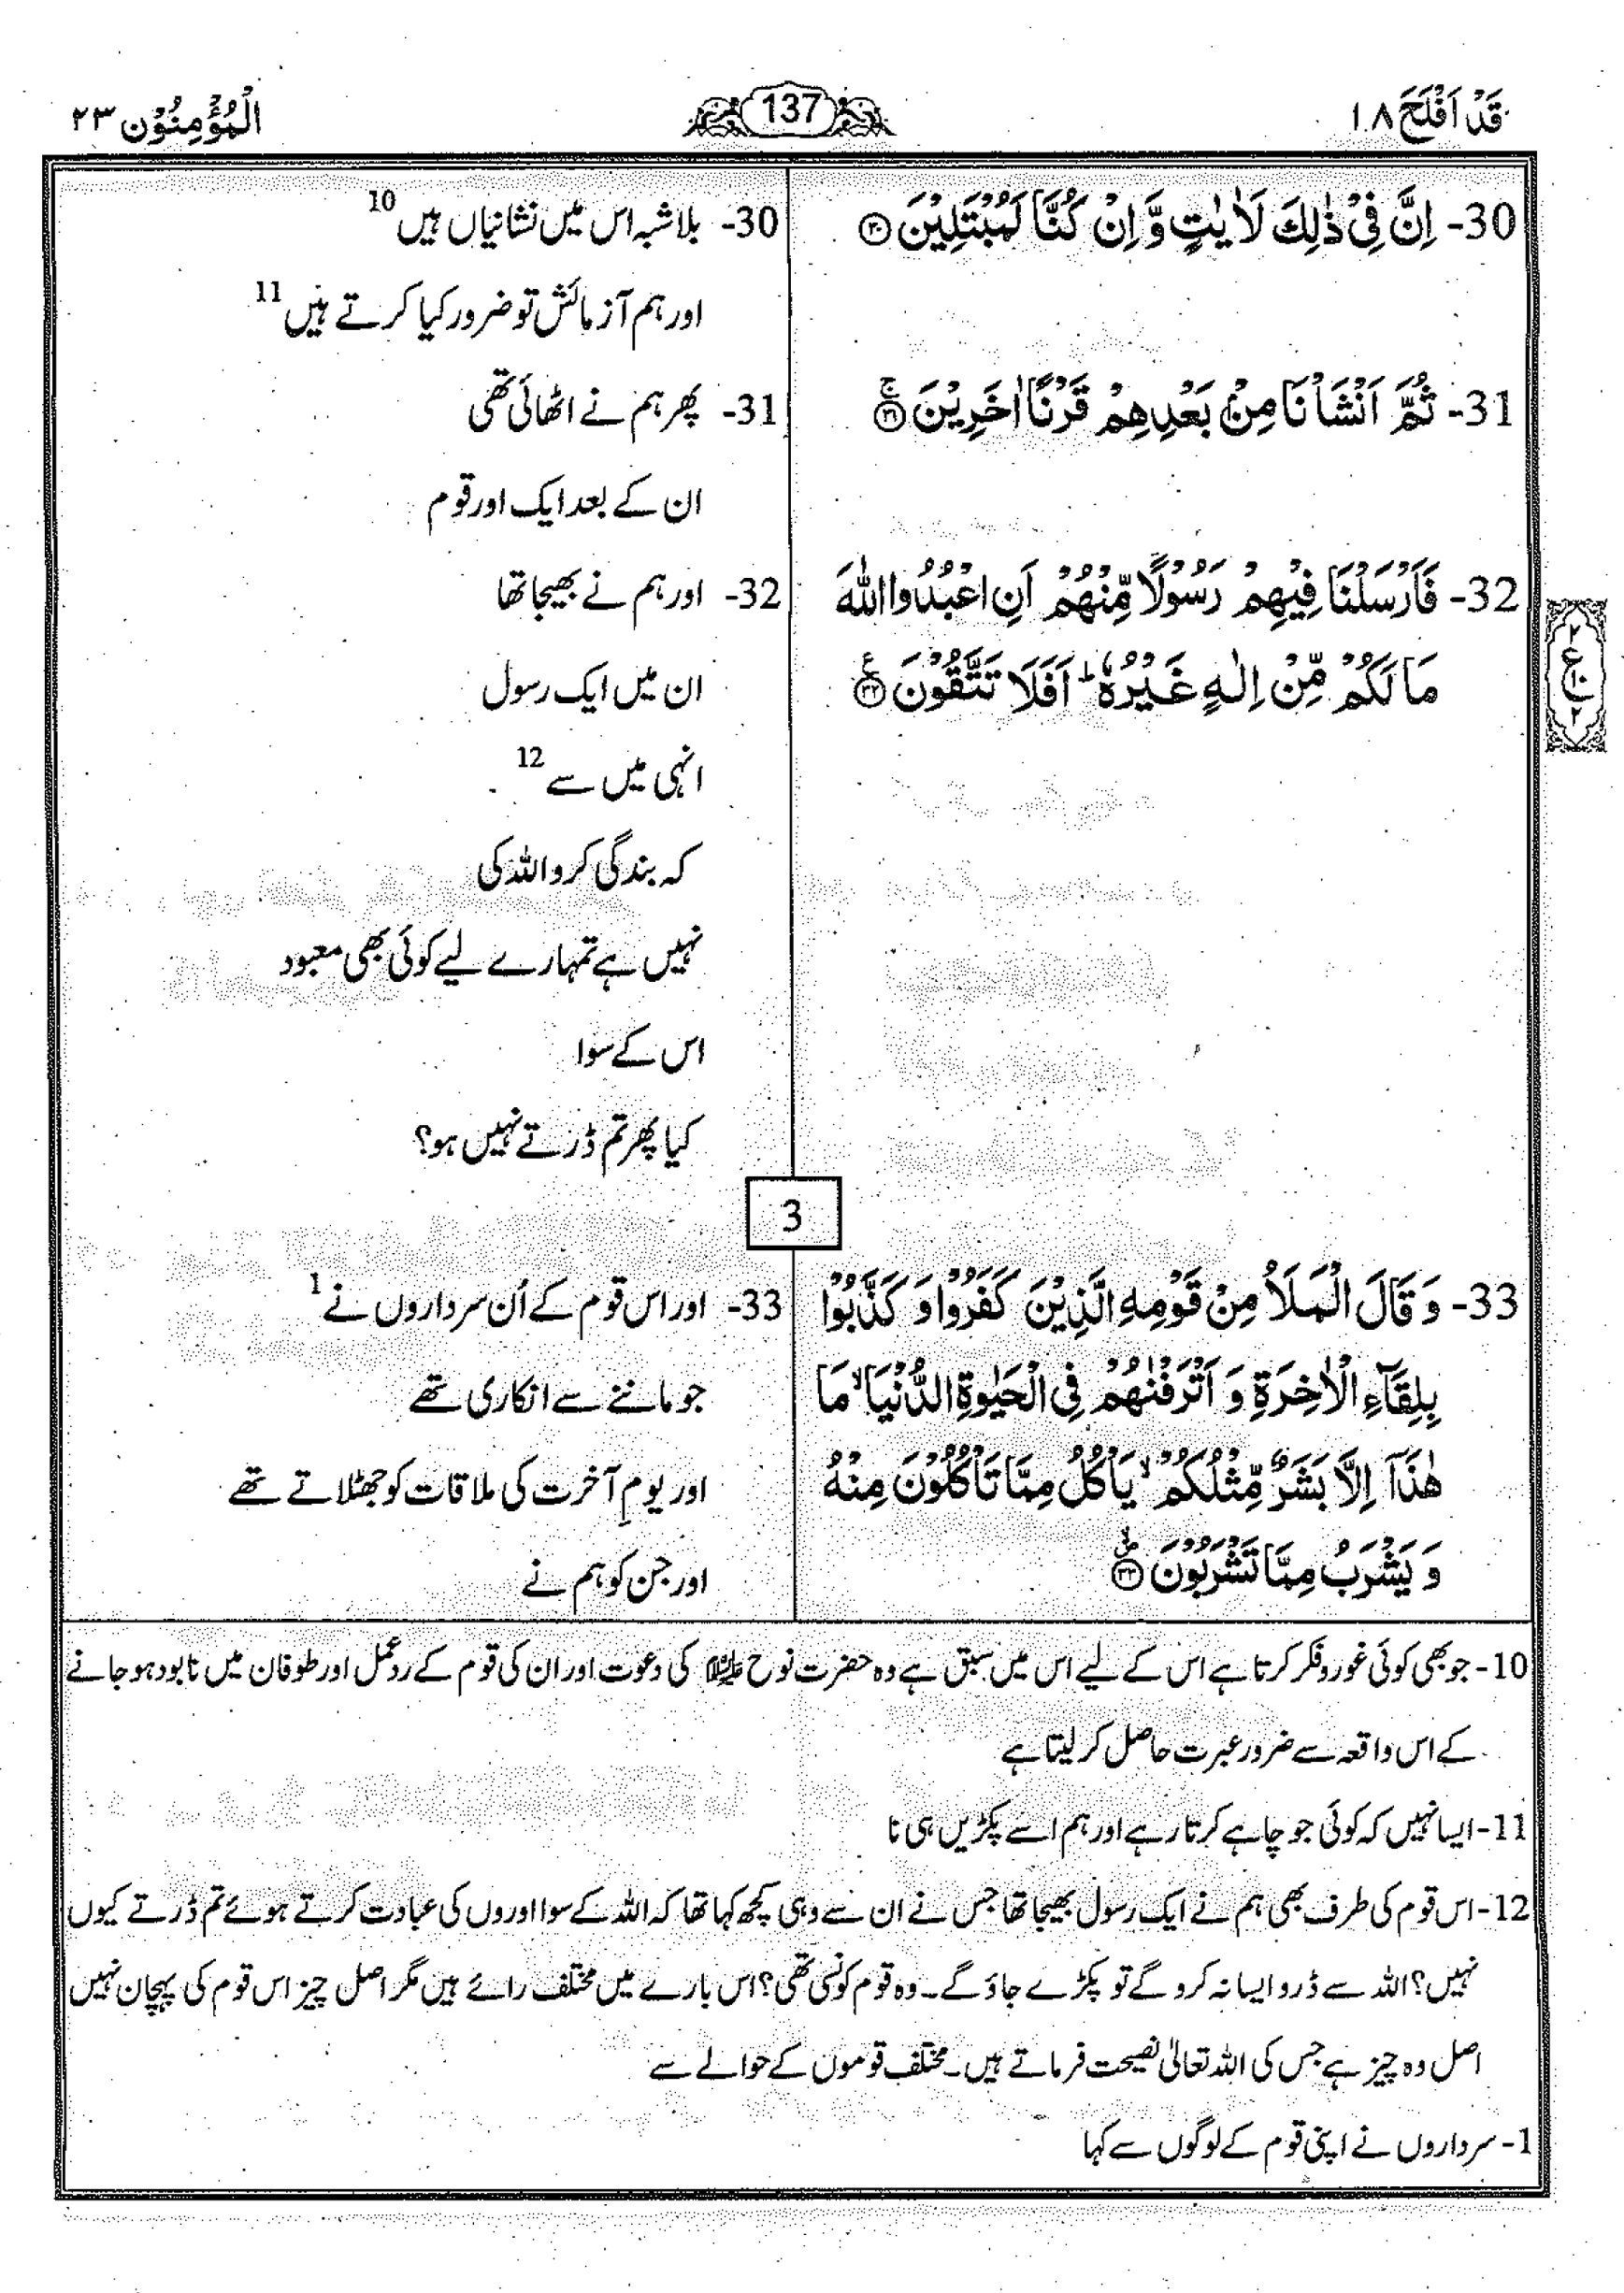 قَدْ اَفْلَحَ ۱۸
137
الْمُؤْمِنُوْن ۲۳
30- اِنَّ فِیْ ذٰلِكَ لَاٰیٰتٍ وَّ اِنْ كُنَّا لَمُبْتَلِیْنَ ۝۳۰
31- ثُمَّ اَنْشَاْنَا مِنْۢ بَعْدِهِمْ قَرْنًا اٰخَرِیْنَ ۝۳۱ۚ
32- فَاَرْسَلْنَا فِیْهِمْ رَسُوْلًا مِّنْهُمْ اَنِ اعْبُدُوا اللّٰهَ
مَا لَكُمْ مِّنْ اِلٰهٍ غَیْرُهٗ ؕ اَفَلَا تَتَّقُوْنَ ۝۳۲۠
۲
ع
۱۰
۲
30- بلاشبہ اس میں نشانیاں ہیں 10
اور ہم آزمائش تو ضرور کیا کرتے ہیں 11
31- پھر ہم نے اٹھائی تھی
ان کے بعد ایک اور قوم
32- اور ہم نے بھیجا تھا
ان میں ایک رسول
انہی میں سے 12
کہ بندگی کرو اللہ کی
نہیں ہے تمہارے لیے کوئی بھی معبود
اس کے سوا
کیا پھر تم ڈرتے نہیں ہو؟
3
33- وَ قَالَ الْمَلَاُ مِنْ قَوْمِهِ الَّذِیْنَ كَفَرُوْا وَ كَذَّبُوْا
بِلِقَآءِ الْاٰخِرَةِ وَ اَتْرَفْنٰهُمْ فِی الْحَیٰوةِ الدُّنْیَا ۙ مَا
هٰذَاۤ اِلَّا بَشَرٌ مِّثْلُكُمْ ۙ یَاْكُلُ مِمَّا تَاْكُلُوْنَ مِنْهُ
وَ یَشْرَبُ مِمَّا تَشْرَبُوْنَ ۝۳۳۪ۙ
33- اور اس قوم کے اُن سرداروں نے 1
جو ماننے سے انکاری تھے
اور یومِ آخرت کی ملاقات کو جھٹلاتے تھے
اور جن کو ہم نے
10- جو بھی کوئی غوروفکر کرتا ہے اس کے لیے اس میں سبق ہے وہ حضرت نوح علیہ السلام کی دعوت اور ان کی قوم کے ردعمل اور طوفان میں نابود ہو جانے
کے اس واقعہ سے ضرور عبرت حاصل کر لیتا ہے
11- ایسا نہیں کہ کوئی جو چاہے کرتا رہے اور ہم اسے پکڑیں ہی نا
12- اس قوم کی طرف بھی ہم نے ایک رسول بھیجا تھا جس نے ان سے وہی کچھ کہا تھا کہ اللہ کے سوا اوروں کی عبادت کرتے ہوئے تم ڈرتے کیوں
نہیں؟ اللہ سے ڈرو ایسا نہ کرو گے تو پکڑے جاؤ گے۔ وہ قوم کونسی تھی؟ اس بارے میں مختلف رائے ہیں مگر اصل چیز اس قوم کی پہچان نہیں
اصل وہ چیز ہے جس کی اللہ تعالیٰ نصیحت فرماتے ہیں۔ مختلف قوموں کے حوالے سے
1- سرداروں نے اپنی قوم کے لوگوں سے کہا